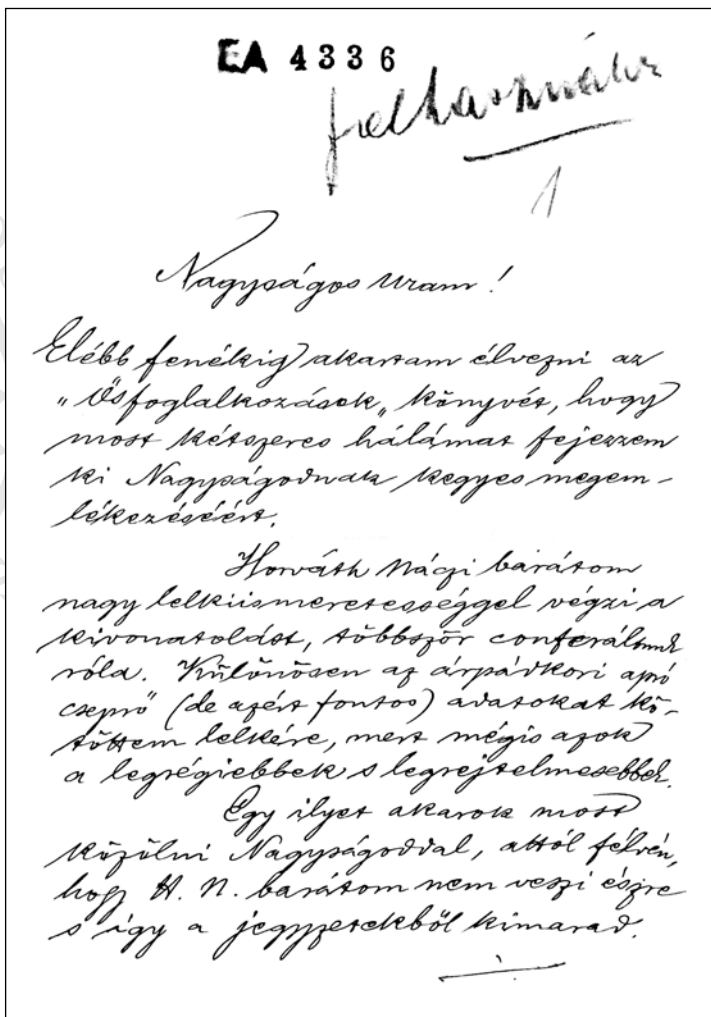 EA 4336
felhasználva
1
Nagyságos Uram!
Elébb fenékig akartam élvezni az
„Ősfoglalkozások„ könyvét, hogy
most kétszeres hálámat fejezzem
ki Nagyságodnak kegyes megem-
lékezéséért.
Horváth Náczi barátom
nagy lelkiismeretességgel végzi a
kivonatolást, többször conferáltunk
róla. Különösen az árpádkori apró
cseprő (de azért fontos) adatokat kö-
töttem lelkére, mert mégis azok
a legrégiebbek s legrejtelmesebbek.
Egy ilyet akarok most
közölni Nagyságoddal, attól félvén,
hogy H. N. barátom nem veszi észre
s így a jegyzetekből kimarad.